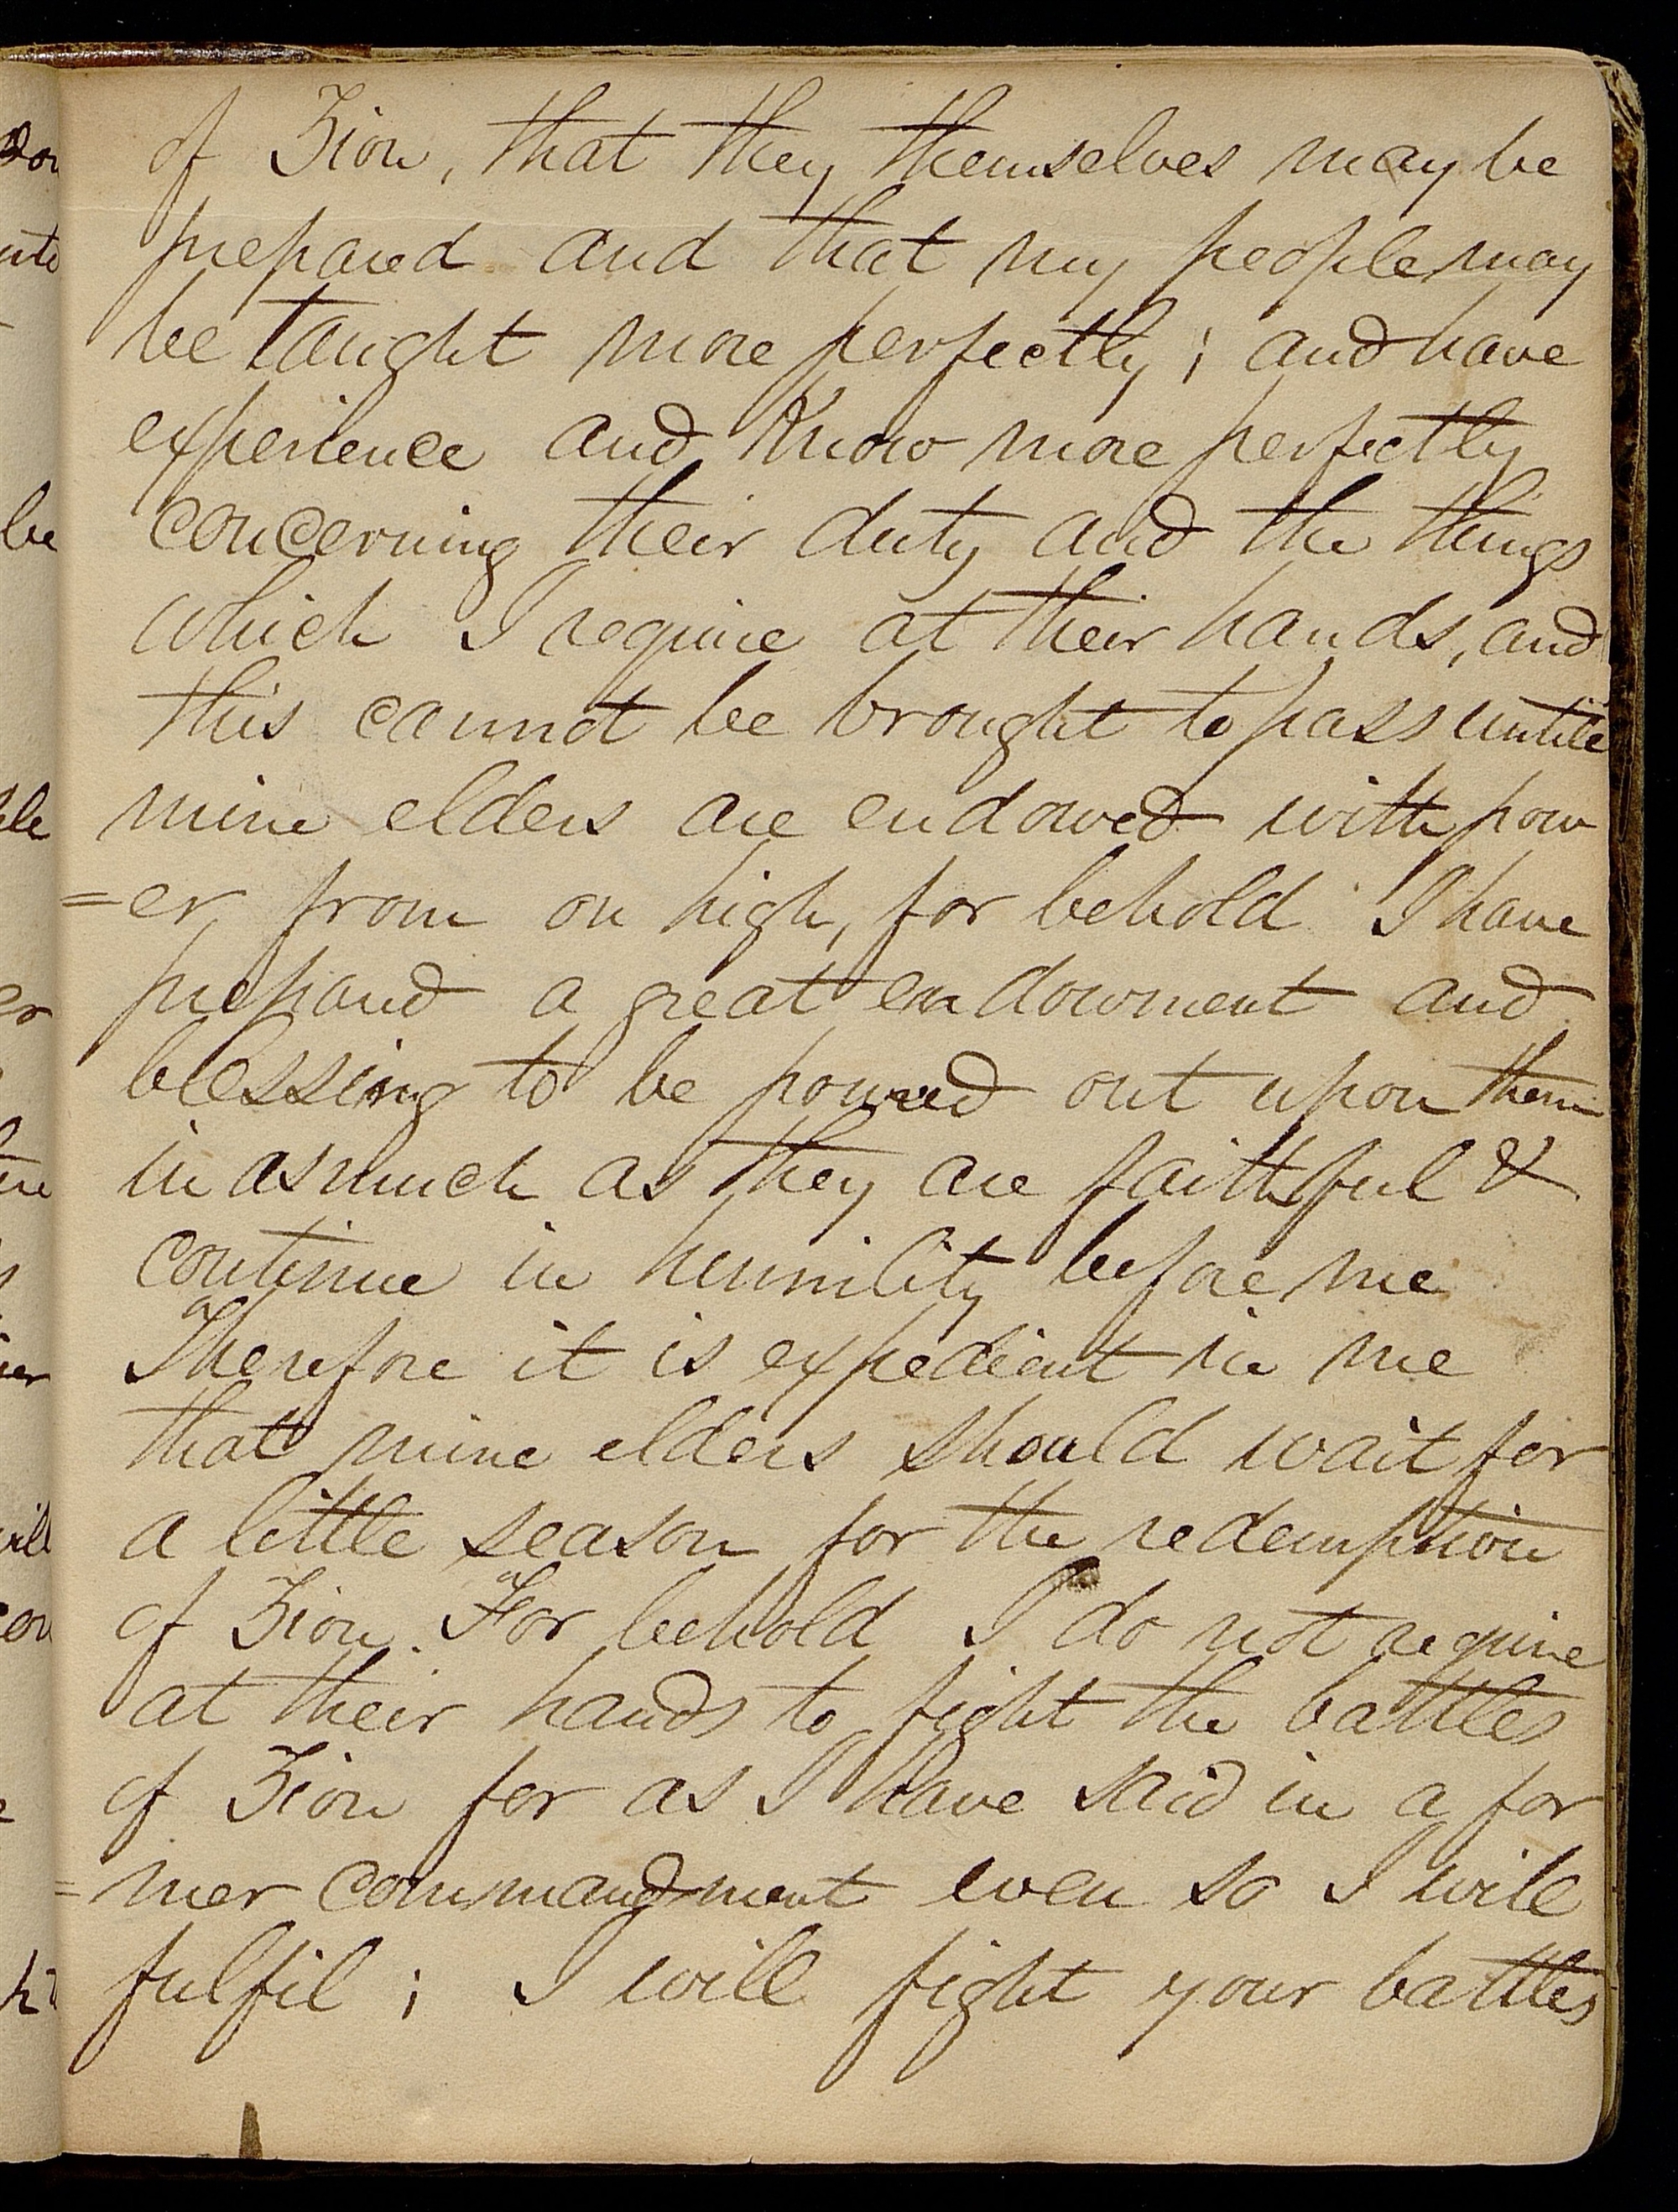 of Zion, that they themselves may be
prepared and that my people may
be taught more perfectly; and have
experience and know more perfectly
concerning their duty and the things
which I require at their hands, and
this cannot be brought to pass untill
mine elders are endowed with pow
=er from on high, for behold I have
prepared a great endowment and
blessing to be poured out upon them
in asmuch as they are faithful &
continue in humility before me
Therefore it is expedient in me
that mine elders should wait for
a little season for the redemption
of Zion. For behold I do not require
at their hands to fight the battles
of Zion for as I have said in a for
=mer commandment even so I will
fulfil; I will fight your battles